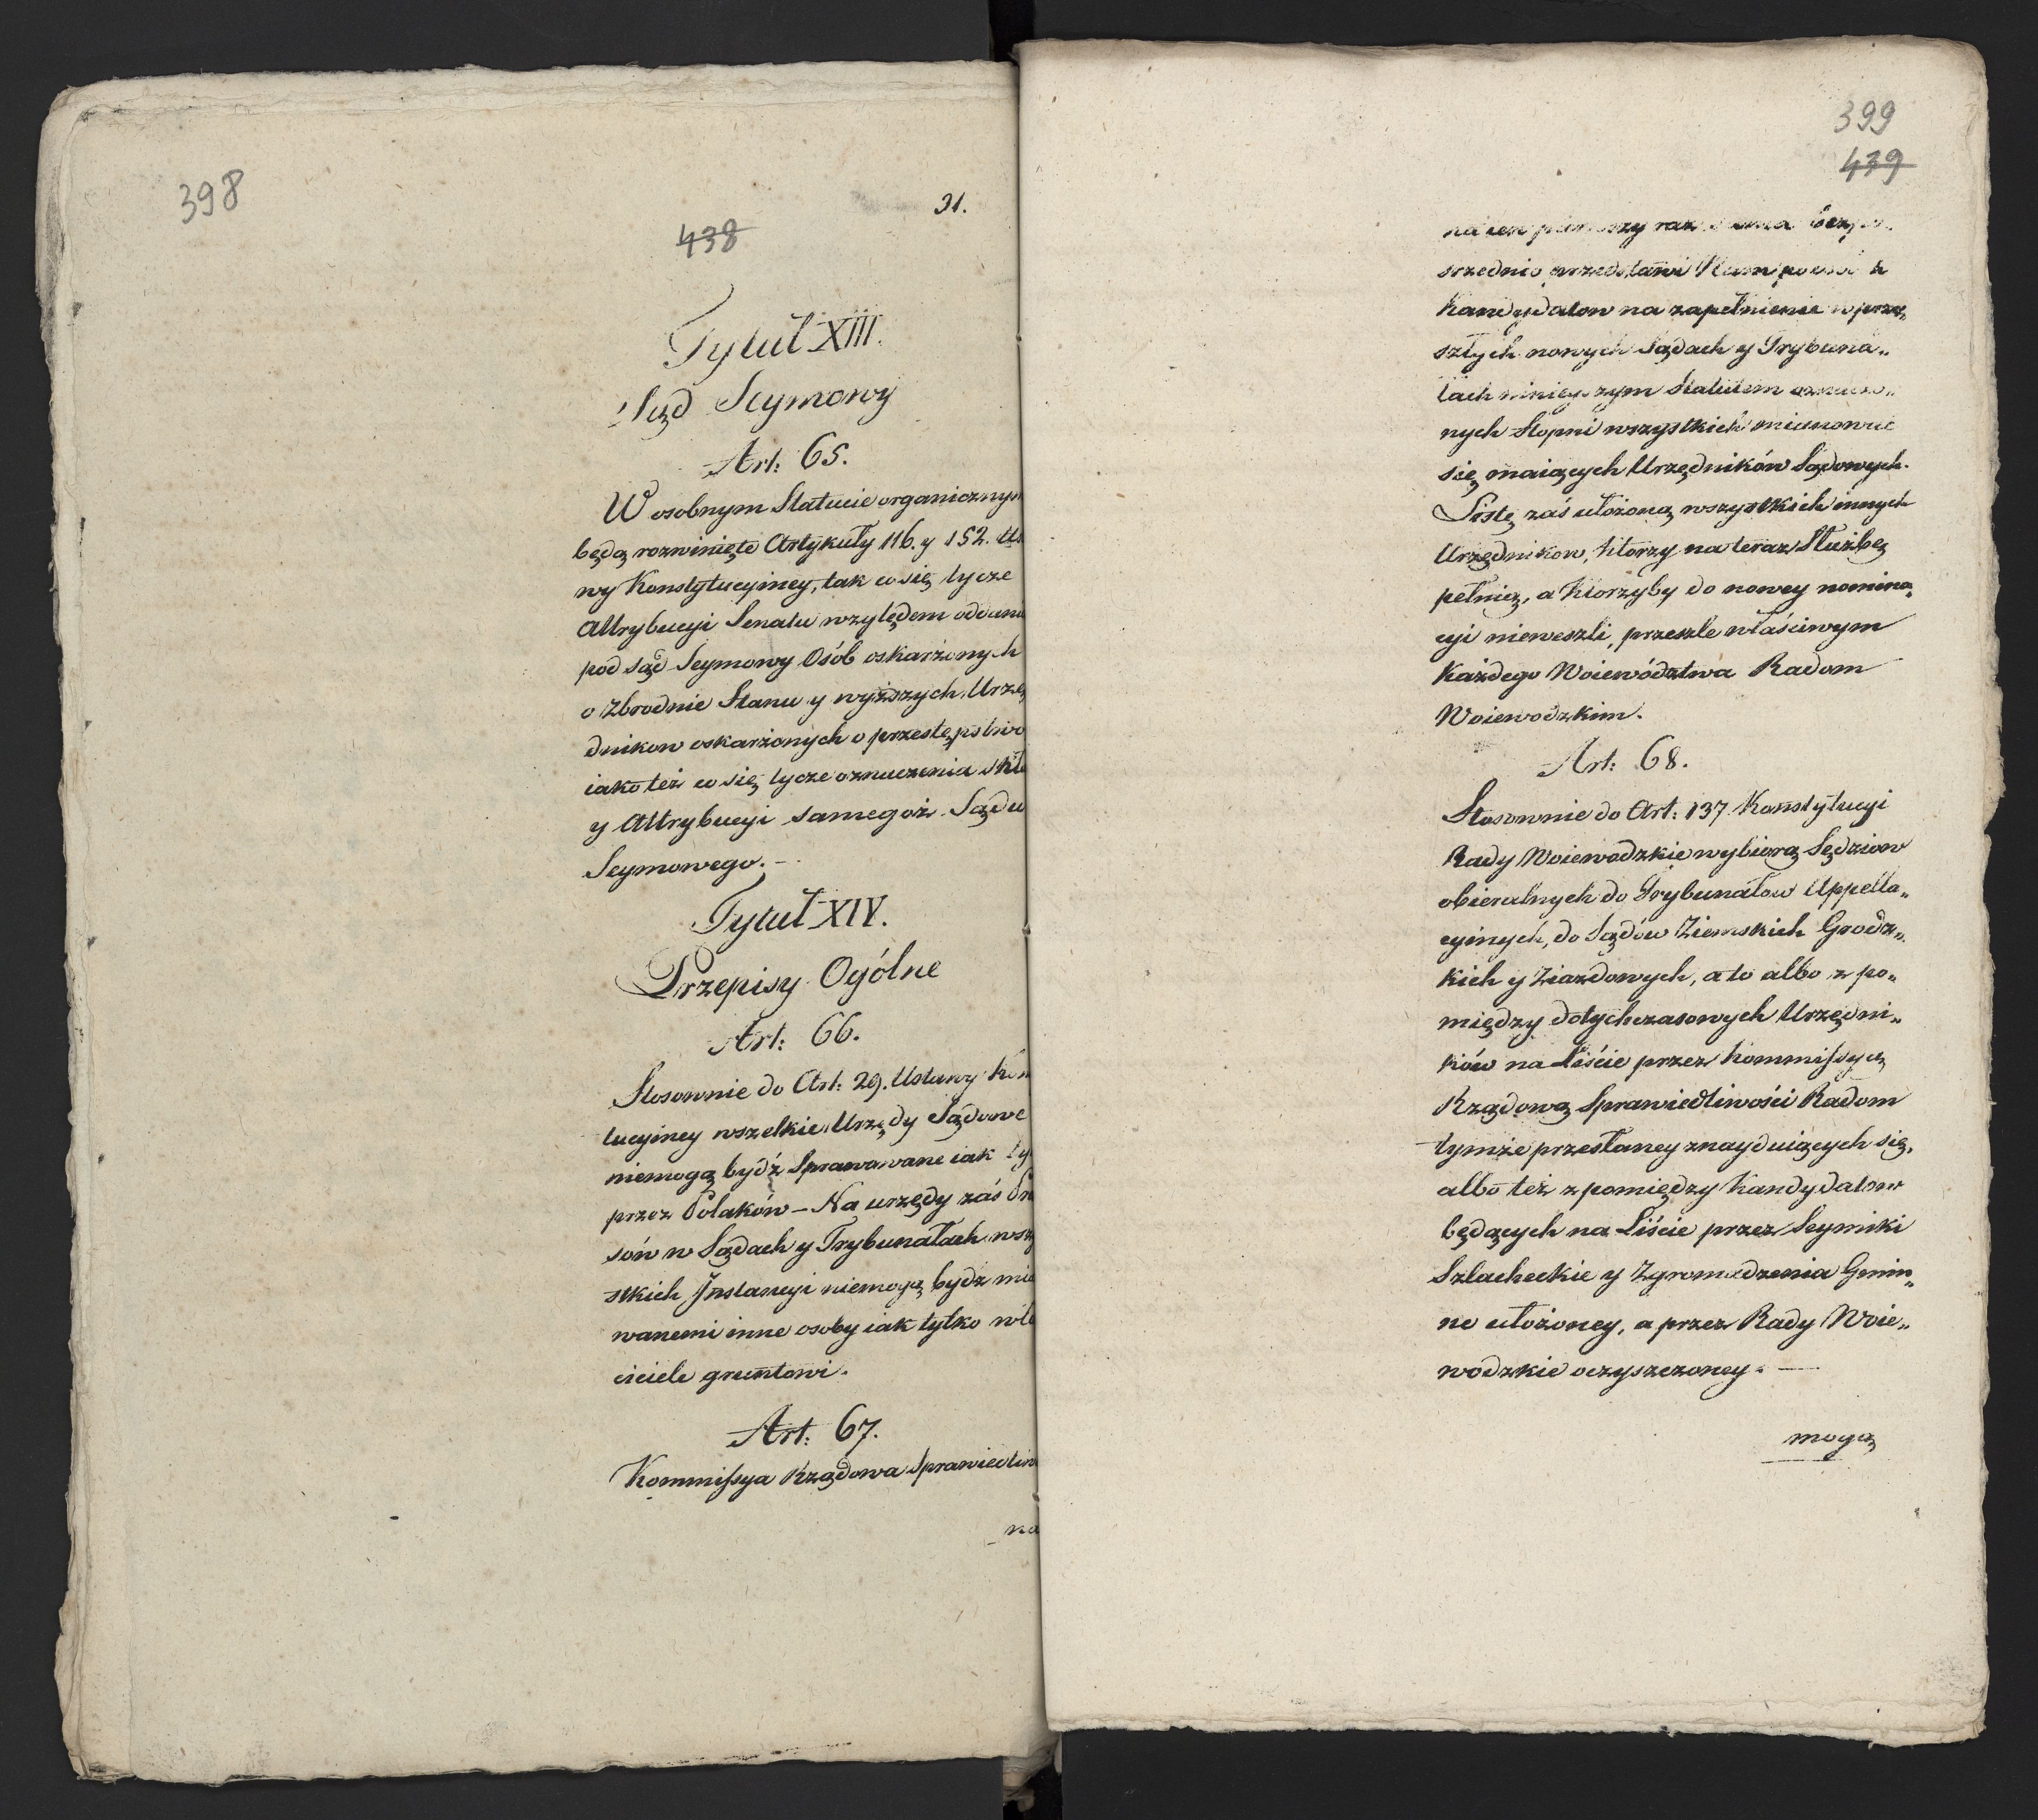 398
31.
438
Tytuł XIII.
Sąd Seymowy
Art: 65.
W osobnym Statucie organicznym
będą rozwinięte Artykuły 116. y 152. Us
wy Konstytucyiney, tak co się tycze
Attrybucyi Senatu względem oddania
pod sąd Seymowy Osób oskarżonych
o Zbrodnie Stanu y wyższych Urzę
dnikow oskarżonych o przestępstwo
iako też co się tycze oznaczenia skła
y Attrybucyi samegoż Sądu
Seymowego. -
Tytuł XIV.
Przepisy Ogólne
Art: 66.
Stosownie do Art: 29. Ustawy Kon
tucyiney wszelkie Urzędy Sądowe
niemogą bydź Sprawowane iak ty
przez Polaków – Na urzędy zaś
sów w Sądach y Trybunałach wszy
stkich Instancyi niemogą bydź mia
wanemi inne osoby iak tylko wła
ciciele gruntowi.
Art: 67.
Kommissya Rządowa Sprawiedliw
na
399
439
na ten pierwszy raz sama bezpo
srzednio przedstawi Nam
Kandydatow na zapełnienie w przy„
szłych nowych Sądach y Trybuna„
łach ninieyszym Statutem oznaczo„
nych Stopni wszystkich mianować
się maiących Urzędników Sądowych.
Listę zaś ułożoną wszystkich innych
Urzędnikow, którzy na teraz Służbę
pełnią, a ktorzyby do nowey nomina„
cyi nieweszli, przeszle właściwym
Każdego Woiewództwa Radom
Woiewodzkim.
Art: 68.
Stosownie do Art: 137. Konstytucyi
Rady Woiewodzkie wybiorą Sędziow
obieralnych do Trybunałow Appella„
cyinych, do Sądów Ziemskich Grodz„
kich y Ziazdowych, a to albo z po„
między dotychczasowych Urzędni„
ków na Liście przez Kommissyą
Rządową Sprawiedliwości Radom
tymże przesłaney znayduiących się,
albo też z pomiędzy Kandydatow
będących na Liście przez Seymiki
Szlacheckie y Zgromadzenia Gmin„
ne ułożoney, a przez Rady Woie„
wodzkie oczyszczoney. —
mogą